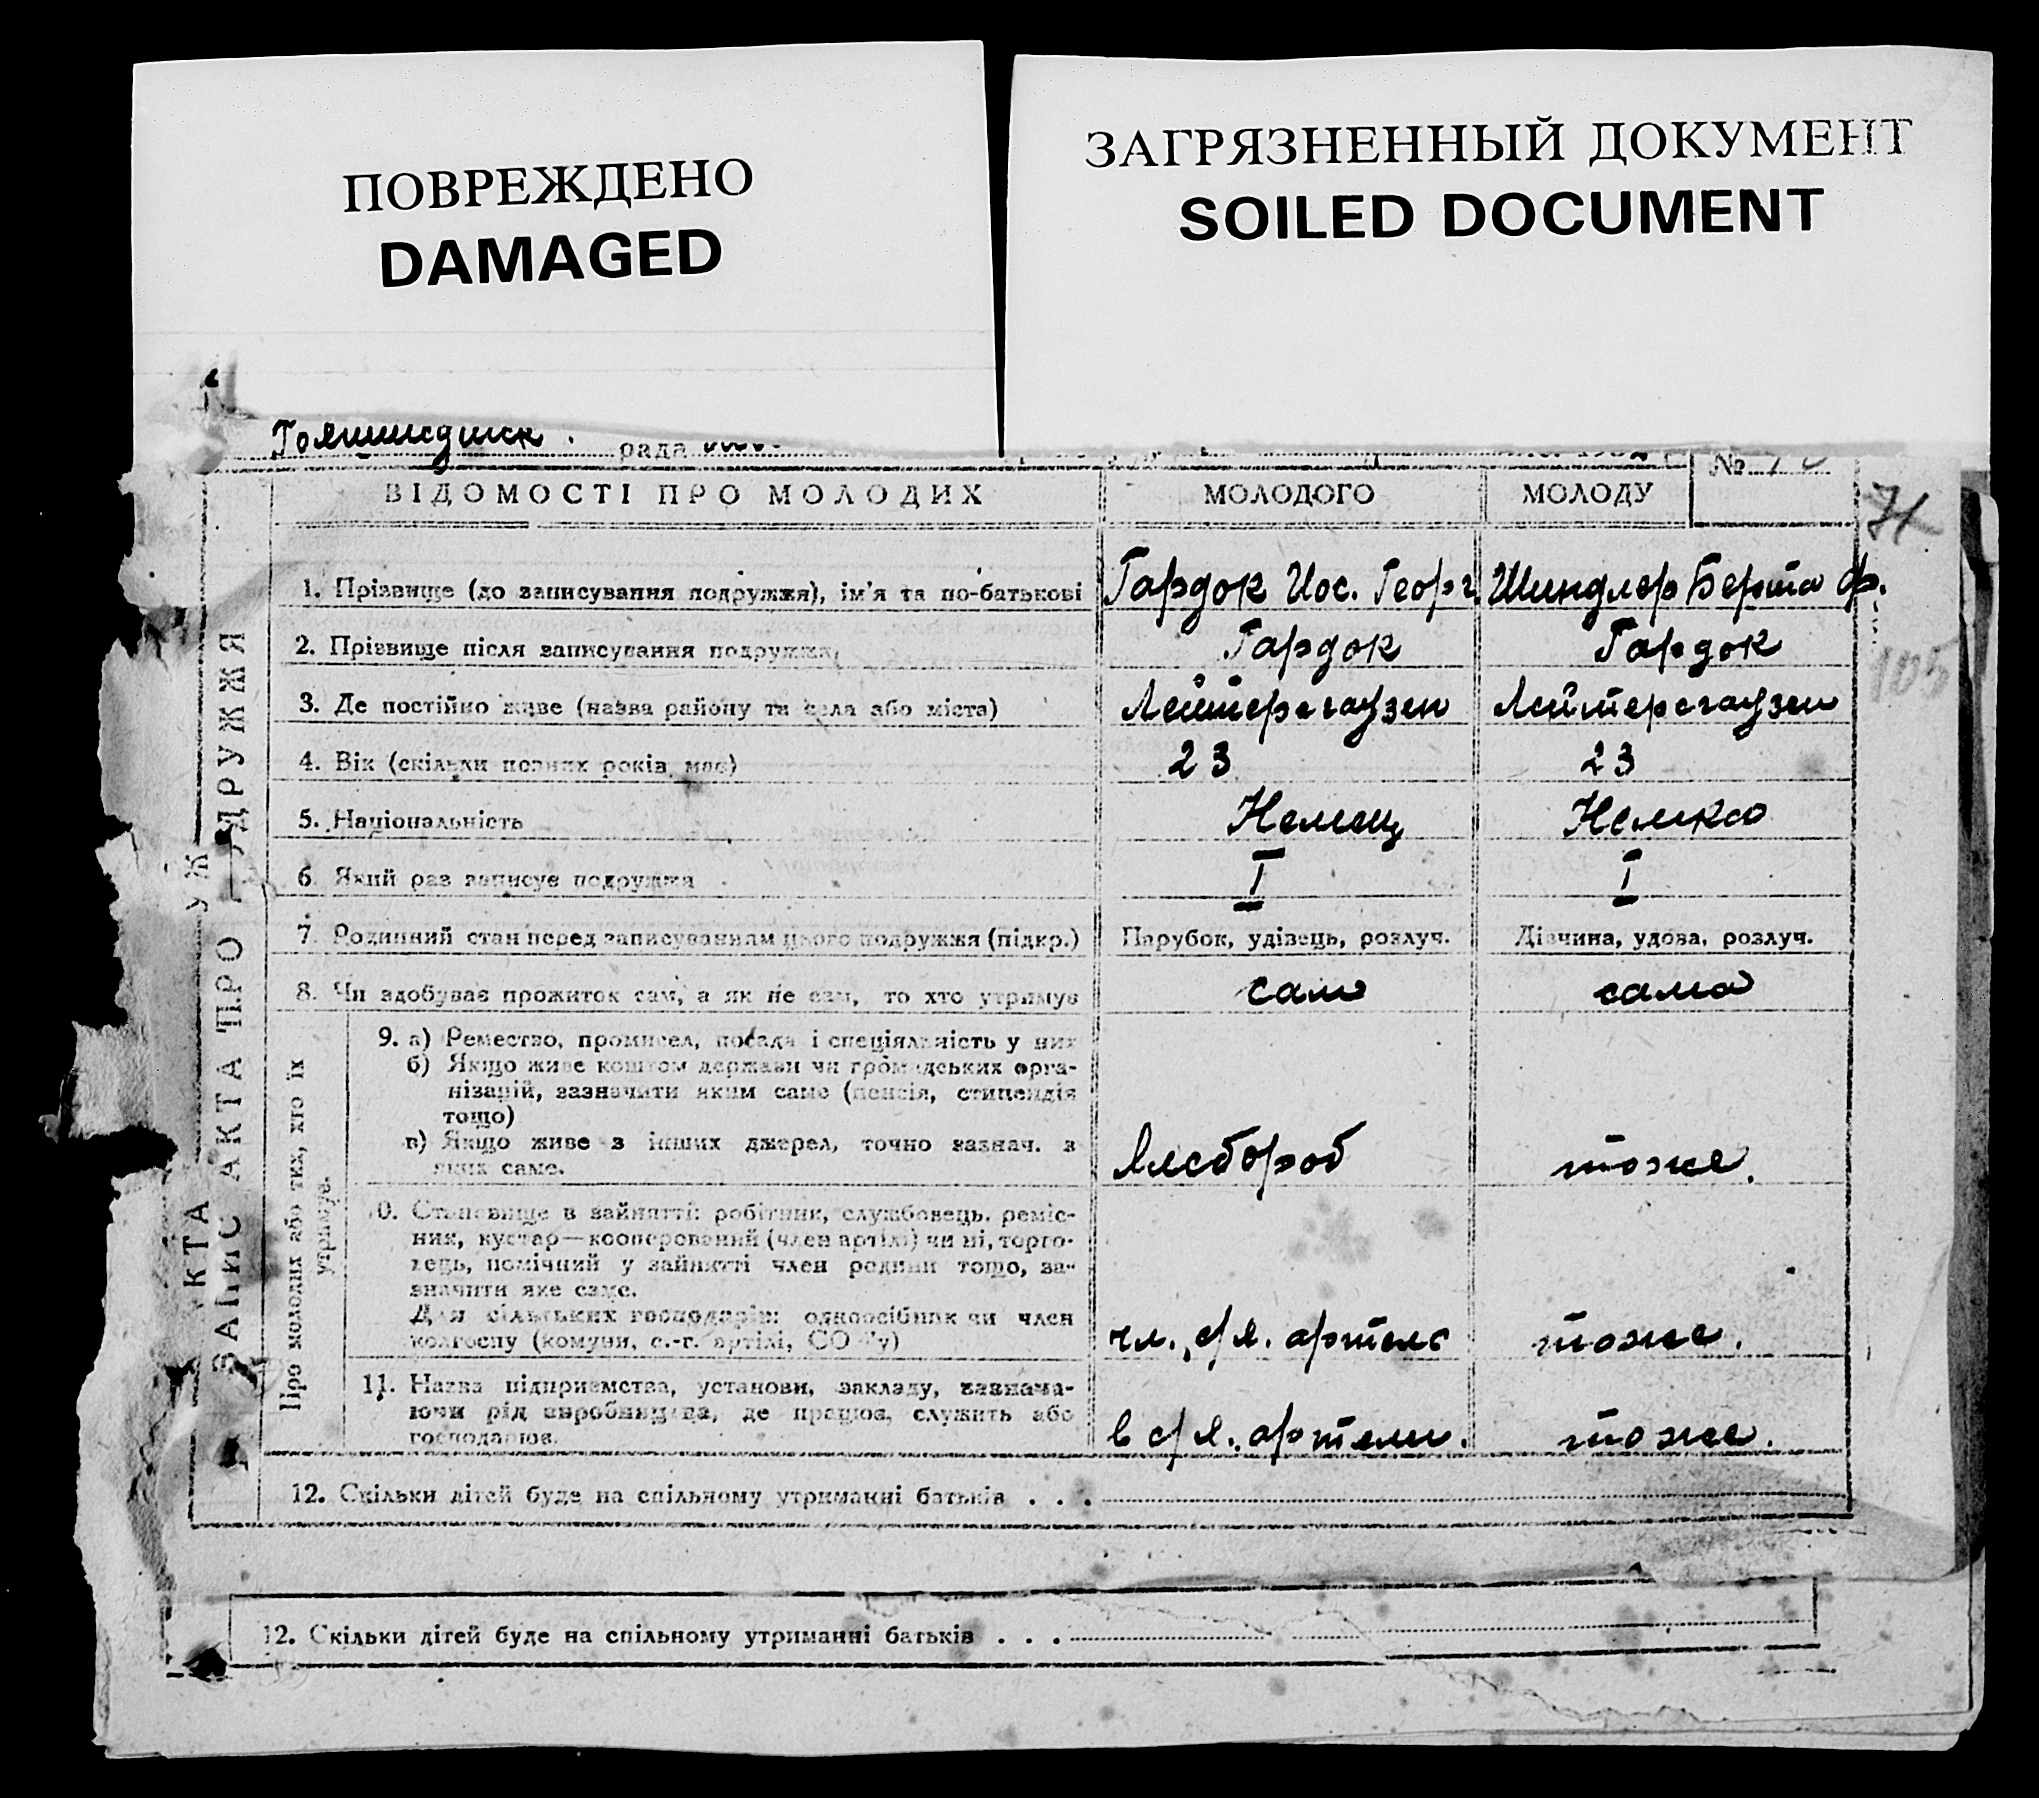 ПОВРЕЖДЕНО
DAMAGED
ЗАГРЯЗНЕННЫЙ ДОКУМЕНТ
SOILED DOCUMENT
рада
№
ВІДОМОСТІ ПРО МОЛОДИХ МОЛОДОГО МОЛОДУ
71
1. Прізвище (до записування подружжя), ім'я та по-батькові Гардок Иос. Георг. Шиндлер Берта Ф.
2. Прізвище після записування подружжя, Гардок Гардок
105
3. Де постійно живе (назва району та села або міста) Лейтерсгаузен Лейтерсгаузен
4. Вік (скільки повних років має) 23 23
5. Національність Немец Немка
6. Який раз записує подружжя I I
7. Родинний стан перед записуванням цього подружжя (підкр.) Парубок, удівець, розлуч. Дівчина, удова, розлуч.
8. Чи здобуває прожиток сам, а як не сам, то хто утримує сам сама
ЗАПИС АКТА ПРО
Про молодих або тих, хто їх
утримує.
9. а) Ремество, промисел, посада і спеціяльність у них
б) Якщо живе коштом держави чи громадських орга-
нізацій, зазначити яким саме (пенсія, стипендія
тощо)
в) Якщо живе з інших джерел, точно зазнач. з
яких саме. Хлебороб тоже.
10. Становище в зайнятті: робітник, службовець, реміс-
ник, кустар—кооперований (член артілі) чи ні, торго-
вець, помічний у зайнятті член родини тощо, за-
значити яке саме.
Для сільських господарів: одноосібник чи член
колгоспу (комуни, с.-г. артілі, СОЗ'у) чл. с/х. артели тоже.
11. Назва підприємства, установи, закладу, зазнача-
ючи рід виробництва, де працює, служить або
господарює. в с/х. артели. тоже.
12. Скільки дітей буде на спільному утриманні батьків . . .
12. Скільки дітей буде на спільному утриманні батьків . . .